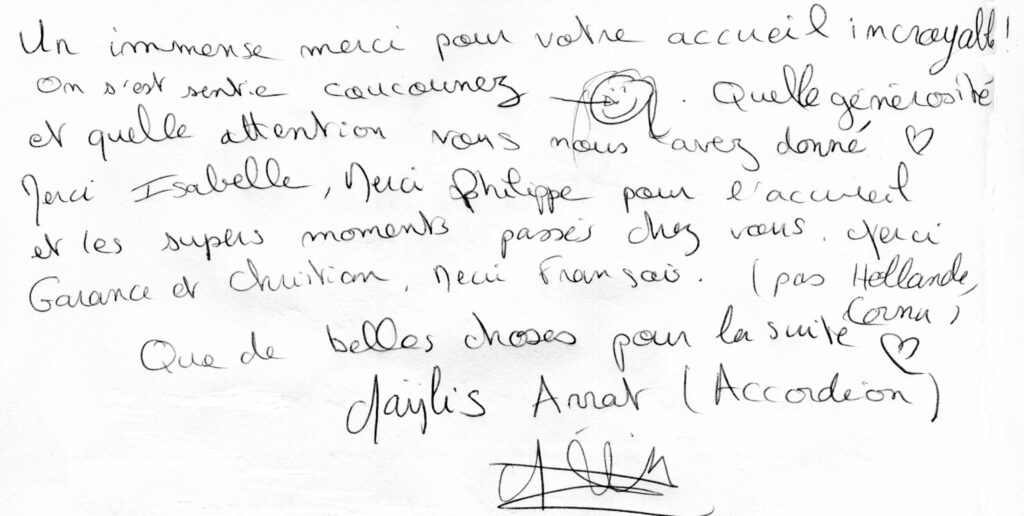 Un immense merci pour votre accueil incroyable !
On s'est sentie coucounez . Quelle générosité
et quelle attention vous nous avez donné ♡
Merci Isabelle, Merci Philippe pour l'accueil
et les supers moments passés chez vous. Merci
Garance et Christian, Merci François. (pas Hollande,
Cornu)
Que de belles choses pour la suite ♡
(Accordéon)